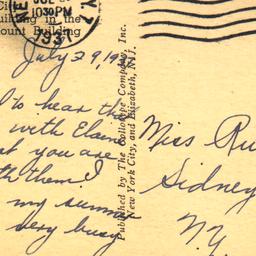 JUL
10 30 PM
1931
City
Building in the
ount Building
July 29, 19
d to hear the
with Elaine
sh you are
th them!
my summer
very busy
Published by The Collotype Company, Inc.
New York City, and Elizabeth, N.J.
Miss Ru
Sidney
N.Y.